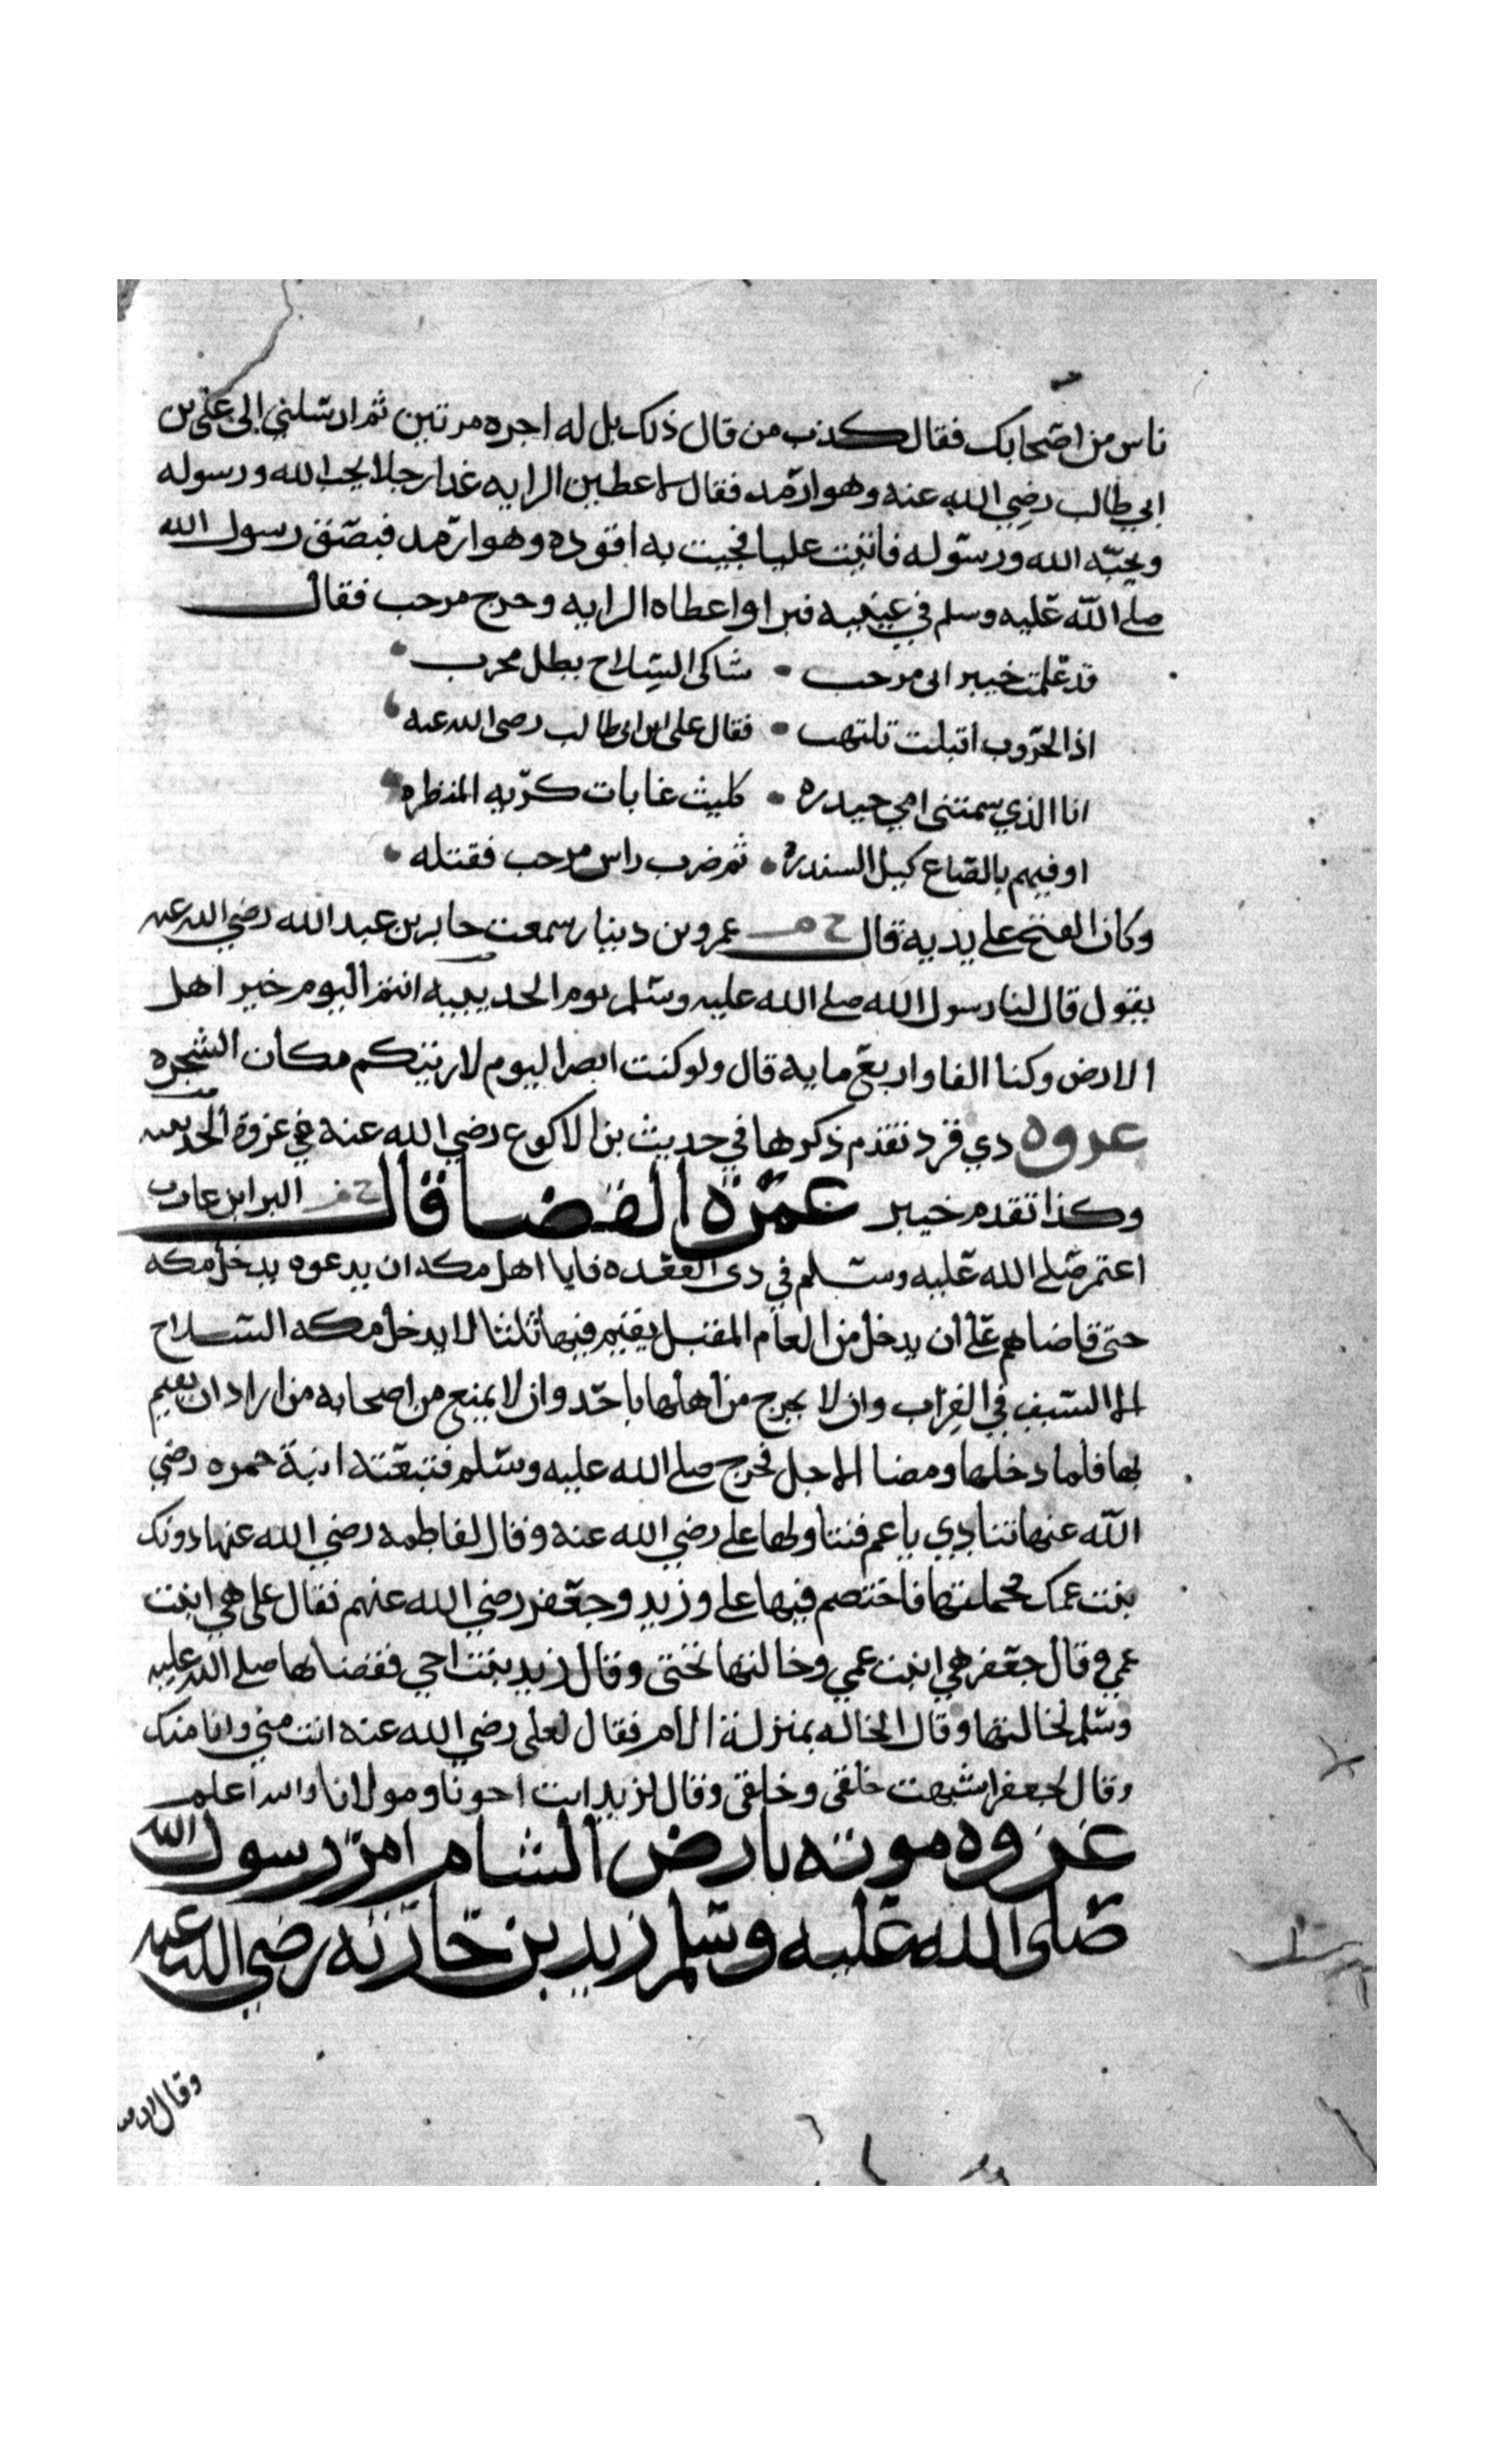 ناس من اصحابك فقال كذب من قال ذلك بل له اجره مرتين ثم ارسلني الى علي بن
ابي طالب رضي الله عنه وهو ارمد فقال لاعطين الرايه غدا رجلا يحب الله ورسوله
ويحبه الله ورسوله فاتيت عليا فجيت به اقوده وهو ارمد فبصق رسول الله
صلى الله عليه وسلم في عينيه فبرا واعطاه الرايه وخرج مرحب فقال
قد علمت خيبر اني مرحب • شاكي السلاح بطل مجرب
اذا الحروب اقبلت تلتهب • فقال علي ابن ابي طالب رضي الله عنه
انا الذي سمتني امي حيدره • كليث غابات كريه المنظره
اوفيهم بالصاع كيل السندره • ثم ضرب راس مرحب فقتله
وكان الفتح على يديه قال خ م عمرو بن دينار سمعت جابر بن عبد الله رضي الله عنه
يقول قال لنا رسول الله صلى الله عليه وسلم يوم الحديبيه انتم اليوم خير اهل
الارض وكنا الفا واربع مايه قال ولو كنت ابصر اليوم لاريتكم مكان الشجره
غزوه ذي قرد تقدم ذكرها في حديث بن الاكوع رضي الله عنه في غزوة الحديبيه
وكذا تقدم خيبر عمرة القضا قال البرا ابن عازب
اعتمر صلى الله عليه وسلم في ذي القعده فابا اهل مكه ان يدعوه يدخل مكه
حتى قاضاهم على ان يدخل من العام المقبل يقيم فيها ثلثا لا يدخل مكه السلاح
الا السيف في القراب وان لا يخرج من اهلها باحد وان لا يمنع من اصحابه من اراد ان يقيم
بها فلما دخلها ومضا الاجل فخرج صلى الله عليه وسلم فتبعته ابنة حمزه رضي
الله عنها تنادي يا عم فتناولها علي رضي الله عنه وقال لفاطمه رضي الله عنها دونك
بنت عمك فحملتها فاختصم فيها علي وزيد وجعفر رضي الله عنهم فقال علي هي ابنت
عمي وقال جعفر هي ابنت عمي وخالتها تحتي وقال زيد بنت اخي فقضا لها صلى الله عليه
وسلم لخالتها وقال الخاله بمنزلة الام فقال لعلي رضي الله عنه انت مني وانا منك
وقال لجعفر اشبهت خلقي وخلقي وقال لزيد انت اخونا ومولانا والله اعلم
غزوه موته بارض الشام امر رسول الله
صلى الله عليه وسلم زيد بن حارثه رضي الله عنه